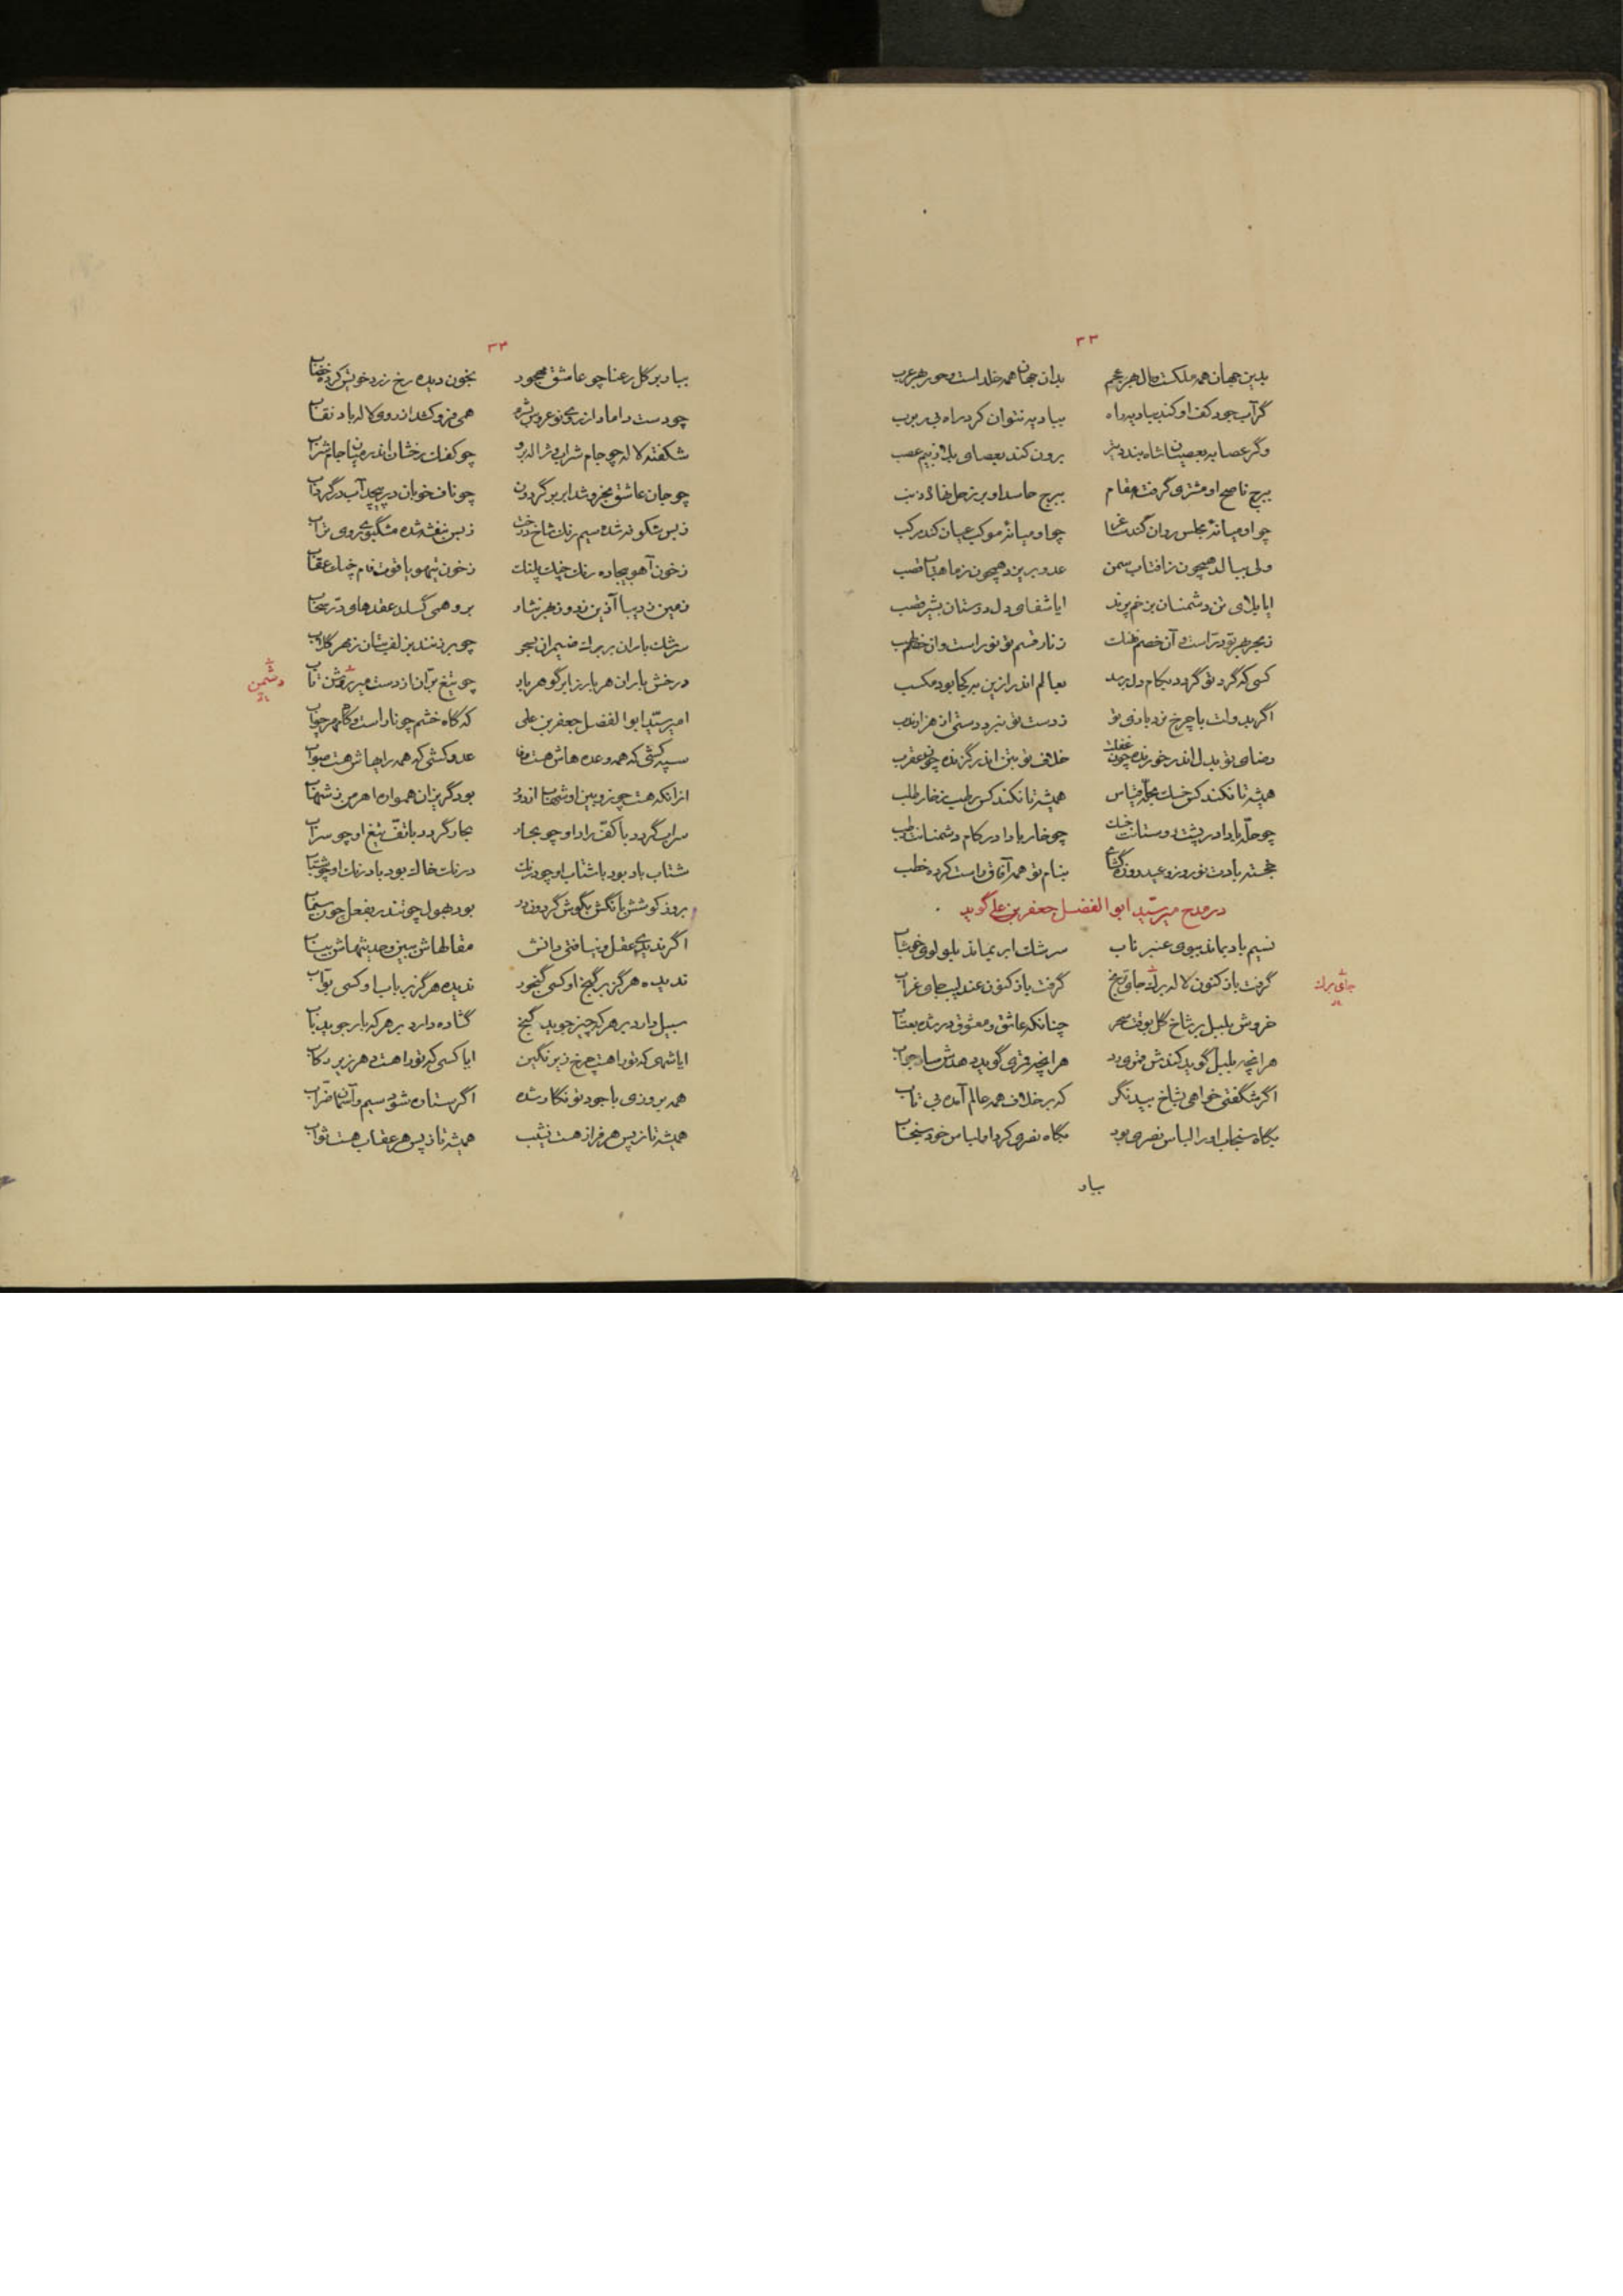 ۳۳
بدین جهان همه ملکت و مال هر عجم بدان جهان همه خلد است و حور هر عرب
گر آب جود کف او کند ببادیه راه ببادیه نتوان کرد راه بی
برون کند بعصای بلا ز بیم عصب
ببرج ناصح او مشتری گرفت مقام ببرج حاسد او بر زحل نهاد ذنب
چو او میانهٔ مجلس روان کند چو او میانهٔ موکب عیان کند مرکب
ولی ببالد همچون ز آفتاب سمن عدو بریزد همچون ز ماهتاب قصب
ایا بلای تن دشمنان بزخم پرند ایا شفای دل دوستان
کسی که گرد تو گردد بکام دل برسد بعالم اندر ازین به کجا بود مکسب
اگر بدولت با چرخ نزد بازی تو ز دست تو نبرد دستی از هزار ندب
رضای تو بدل اندر خلاف تو بتن اندر گزنده چون عقرب
همیشه تا نکند کس خسک بحلّه قیاس همیشه تا نکند کس رطب ز خار طلب
چو حلّه باد در پشت دوستانت خسک چو خار بادا در کام دشمنانت رطب
خجسته بادت نوروز و عید روزه گشای بنام تو همه آفاق راست کرده خطب
در مدح میر سیّد ابو الفضل جعفر بن علی گوید
نسیم باد بماند ببوی عنبر ناب سرشک ابر بماند بلولوی خوشاب
گرفت باز کنون لاله برک جای ترنج گرفت باز کنون عندلیب جای غراب
جای برک
خروش بلبل بر شاخ گل بوقت سحر چنانکه عاشق و معشوق در شده بعتاب
هر انچه بلبل گوید کندش قمری رد هر انچه قمری گوید دهدش سار جواب
اگر شگفتی خواهی بشاخ بید نگر که بر خلاف همه عالم آمده بی تاب
بگاه سنجاب او را لباس نصری بود بگاه نصری کرد او لباس خود سنجاب
بباد
۳۴
بباد بر گل رعنا چو عاشق مهجور بخون دیده رخ زرد خویش کرده خضاب
چو دست داماد از روی نو عروس بشرم همی فرو کشد از روی لاله باد نقاب
شکفته لاله چو جام شراب و ژاله برو چو کفک رخشان اندر میان جام شراب
چو جان عاشق بخروشد ابر بر گردون چو ناف خوبان در پیچد آب در گرداب
ز بس شکوفه شده سیم رنک شاخ درخت ز بس بنفشه شده مشگبوی روی تراب
ز خون آهو بیجاده رنک چنک پلنک ز خون تیهو یاقوت فام چنک عقاب
زمین ز دیبا آذین زد و ز بهر نثار برو همی گسلد عقدهای در سحاب
سرشک باران بر برک ضیمران بسحر چو بر زنند بزلف بتان ز بهر گلاب
درخش باران هر بار ز ابر گوهر بار چو تیغ برّان از دست میر روشن تاب
دشمن
امیر سیّد ابو الفضل جعفر بن علی که گاه خشم چو نار است و گاه مهر چو آب
سپه کشی که همه وعده هاش هست وفا عدو کشی که همه رایهاش هست صواب
از انکه هست چو زوبین او شهاب از دور بود گریزان همواره اهرمن ز شهاب
سراب گردد با کفّ راد او چو بحار بحار گردد با تفّ تیغ او چو سراب
شتاب باد بود با شتاب او چو درنک درنک خاک بود با درنک او چو شتاب
اگر ندیدی عقل و نیافتی دانش مقالهاش ببین و حدیثهاش بیاب
ندیده هرگز بر گنج او کسی گنجور ندیده هرگز بر باب او کسی بوّاب
سبیل دارد بر هر که چیز جوید گنج گشاده دارد بر هر که بار جوید باب
ایا شهی که ترا هست چرخ زیر نگین ایا کسی که ترا هست دهر زیر رکاب
همه بروزی با جود تو بکار شده اگر ستاره شود سیم و آسمان ضرّاب
همیشه تا ز پس هر فراز هست نشیب همیشه تا ز پس هر عقاب هست ثواب